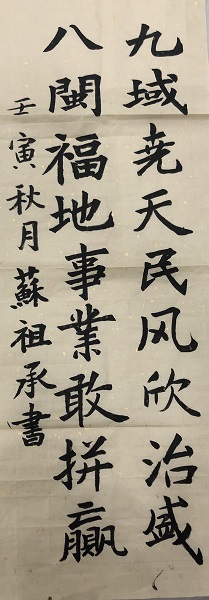 九域尧天民风欣治盛
八閩福地事業敢拼赢
壬寅秋月蘇祖承書